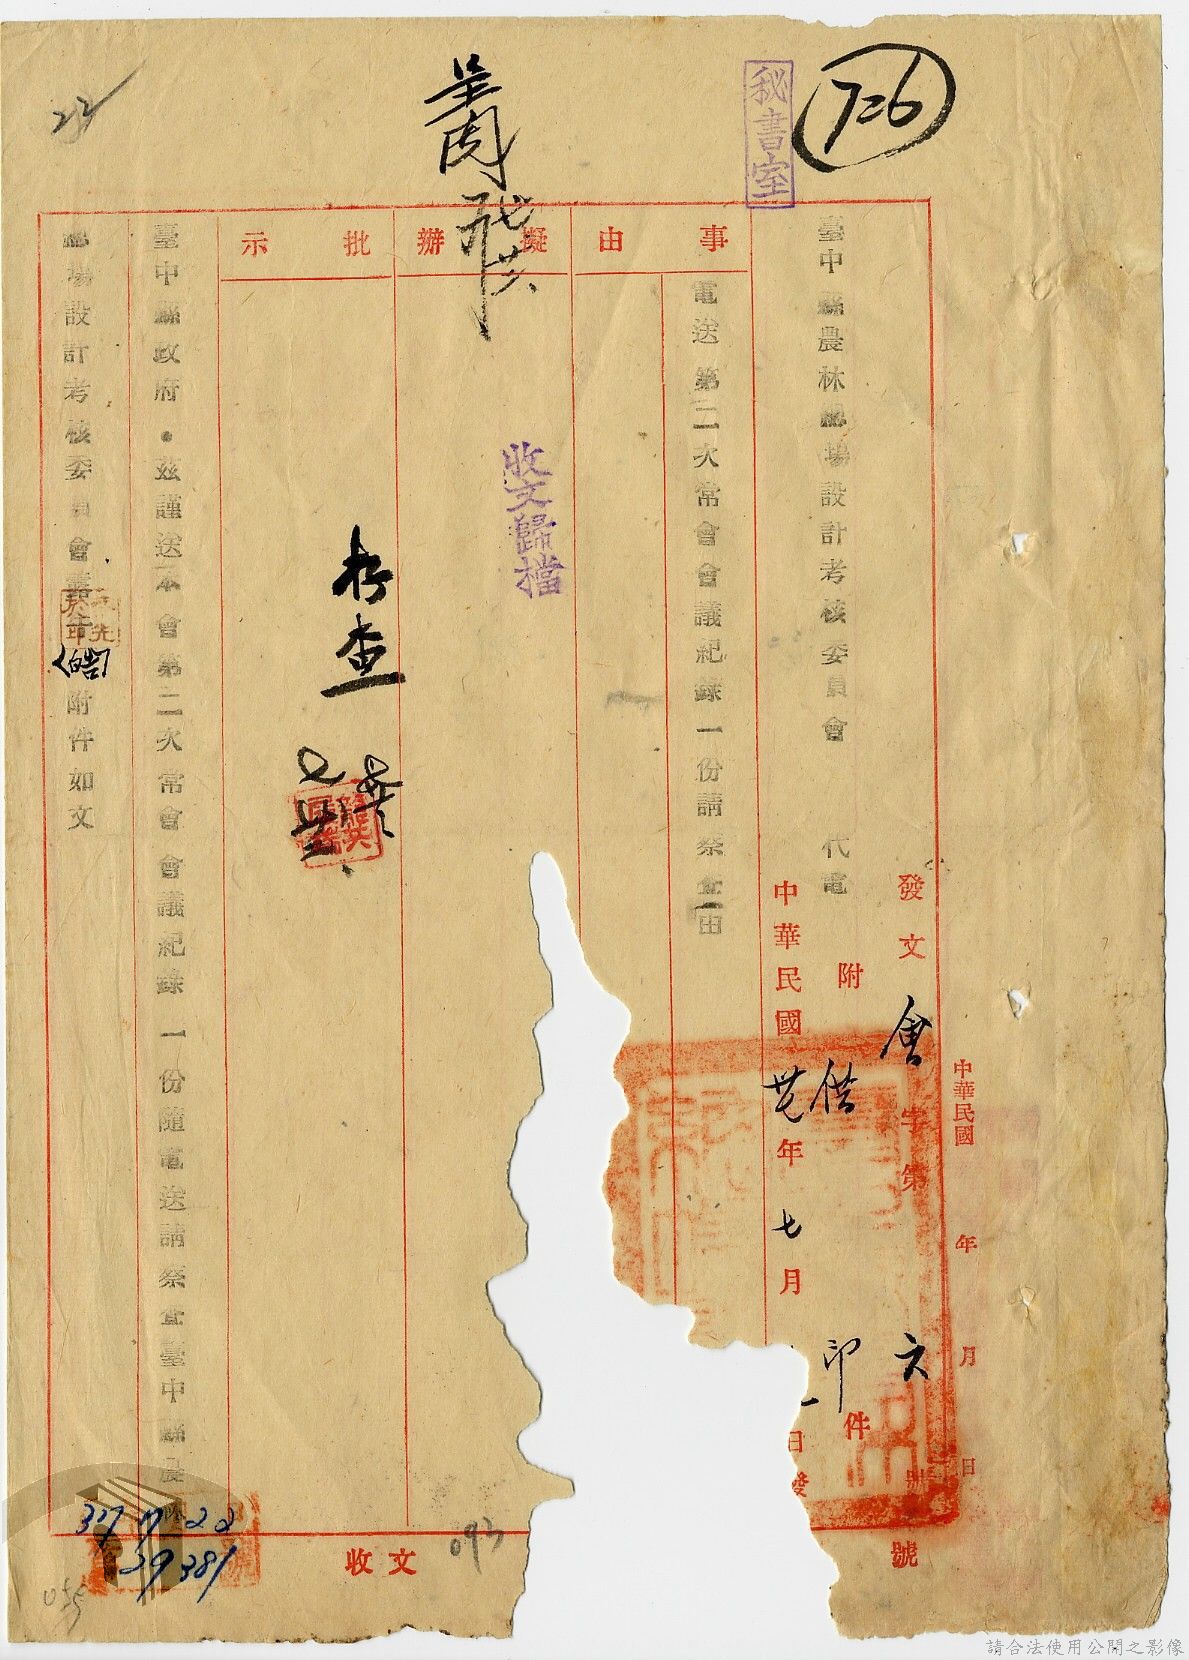 726
秘書室
22
臺中縣農林總場設計考核委員會 代電
發文 會字第 六 號
附 件
中華民國 年 月 日
中華民國卅七年七月 日發
事由
擬辦
批示
電送第二次常會會議紀錄一份請察查由
收文歸檔
存查
臺中縣政府・茲謹送本會第二次常會會議紀錄一份隨電送請察查臺中縣農林
總場設計考核委員會 附件如文
收文
093
37 7 22
29381
055
請合法使用公開之影像